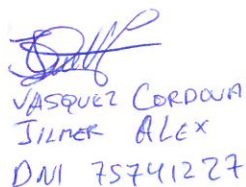 VASQUEZ CORDOVA
JILMER ALEX
DNI 75741227